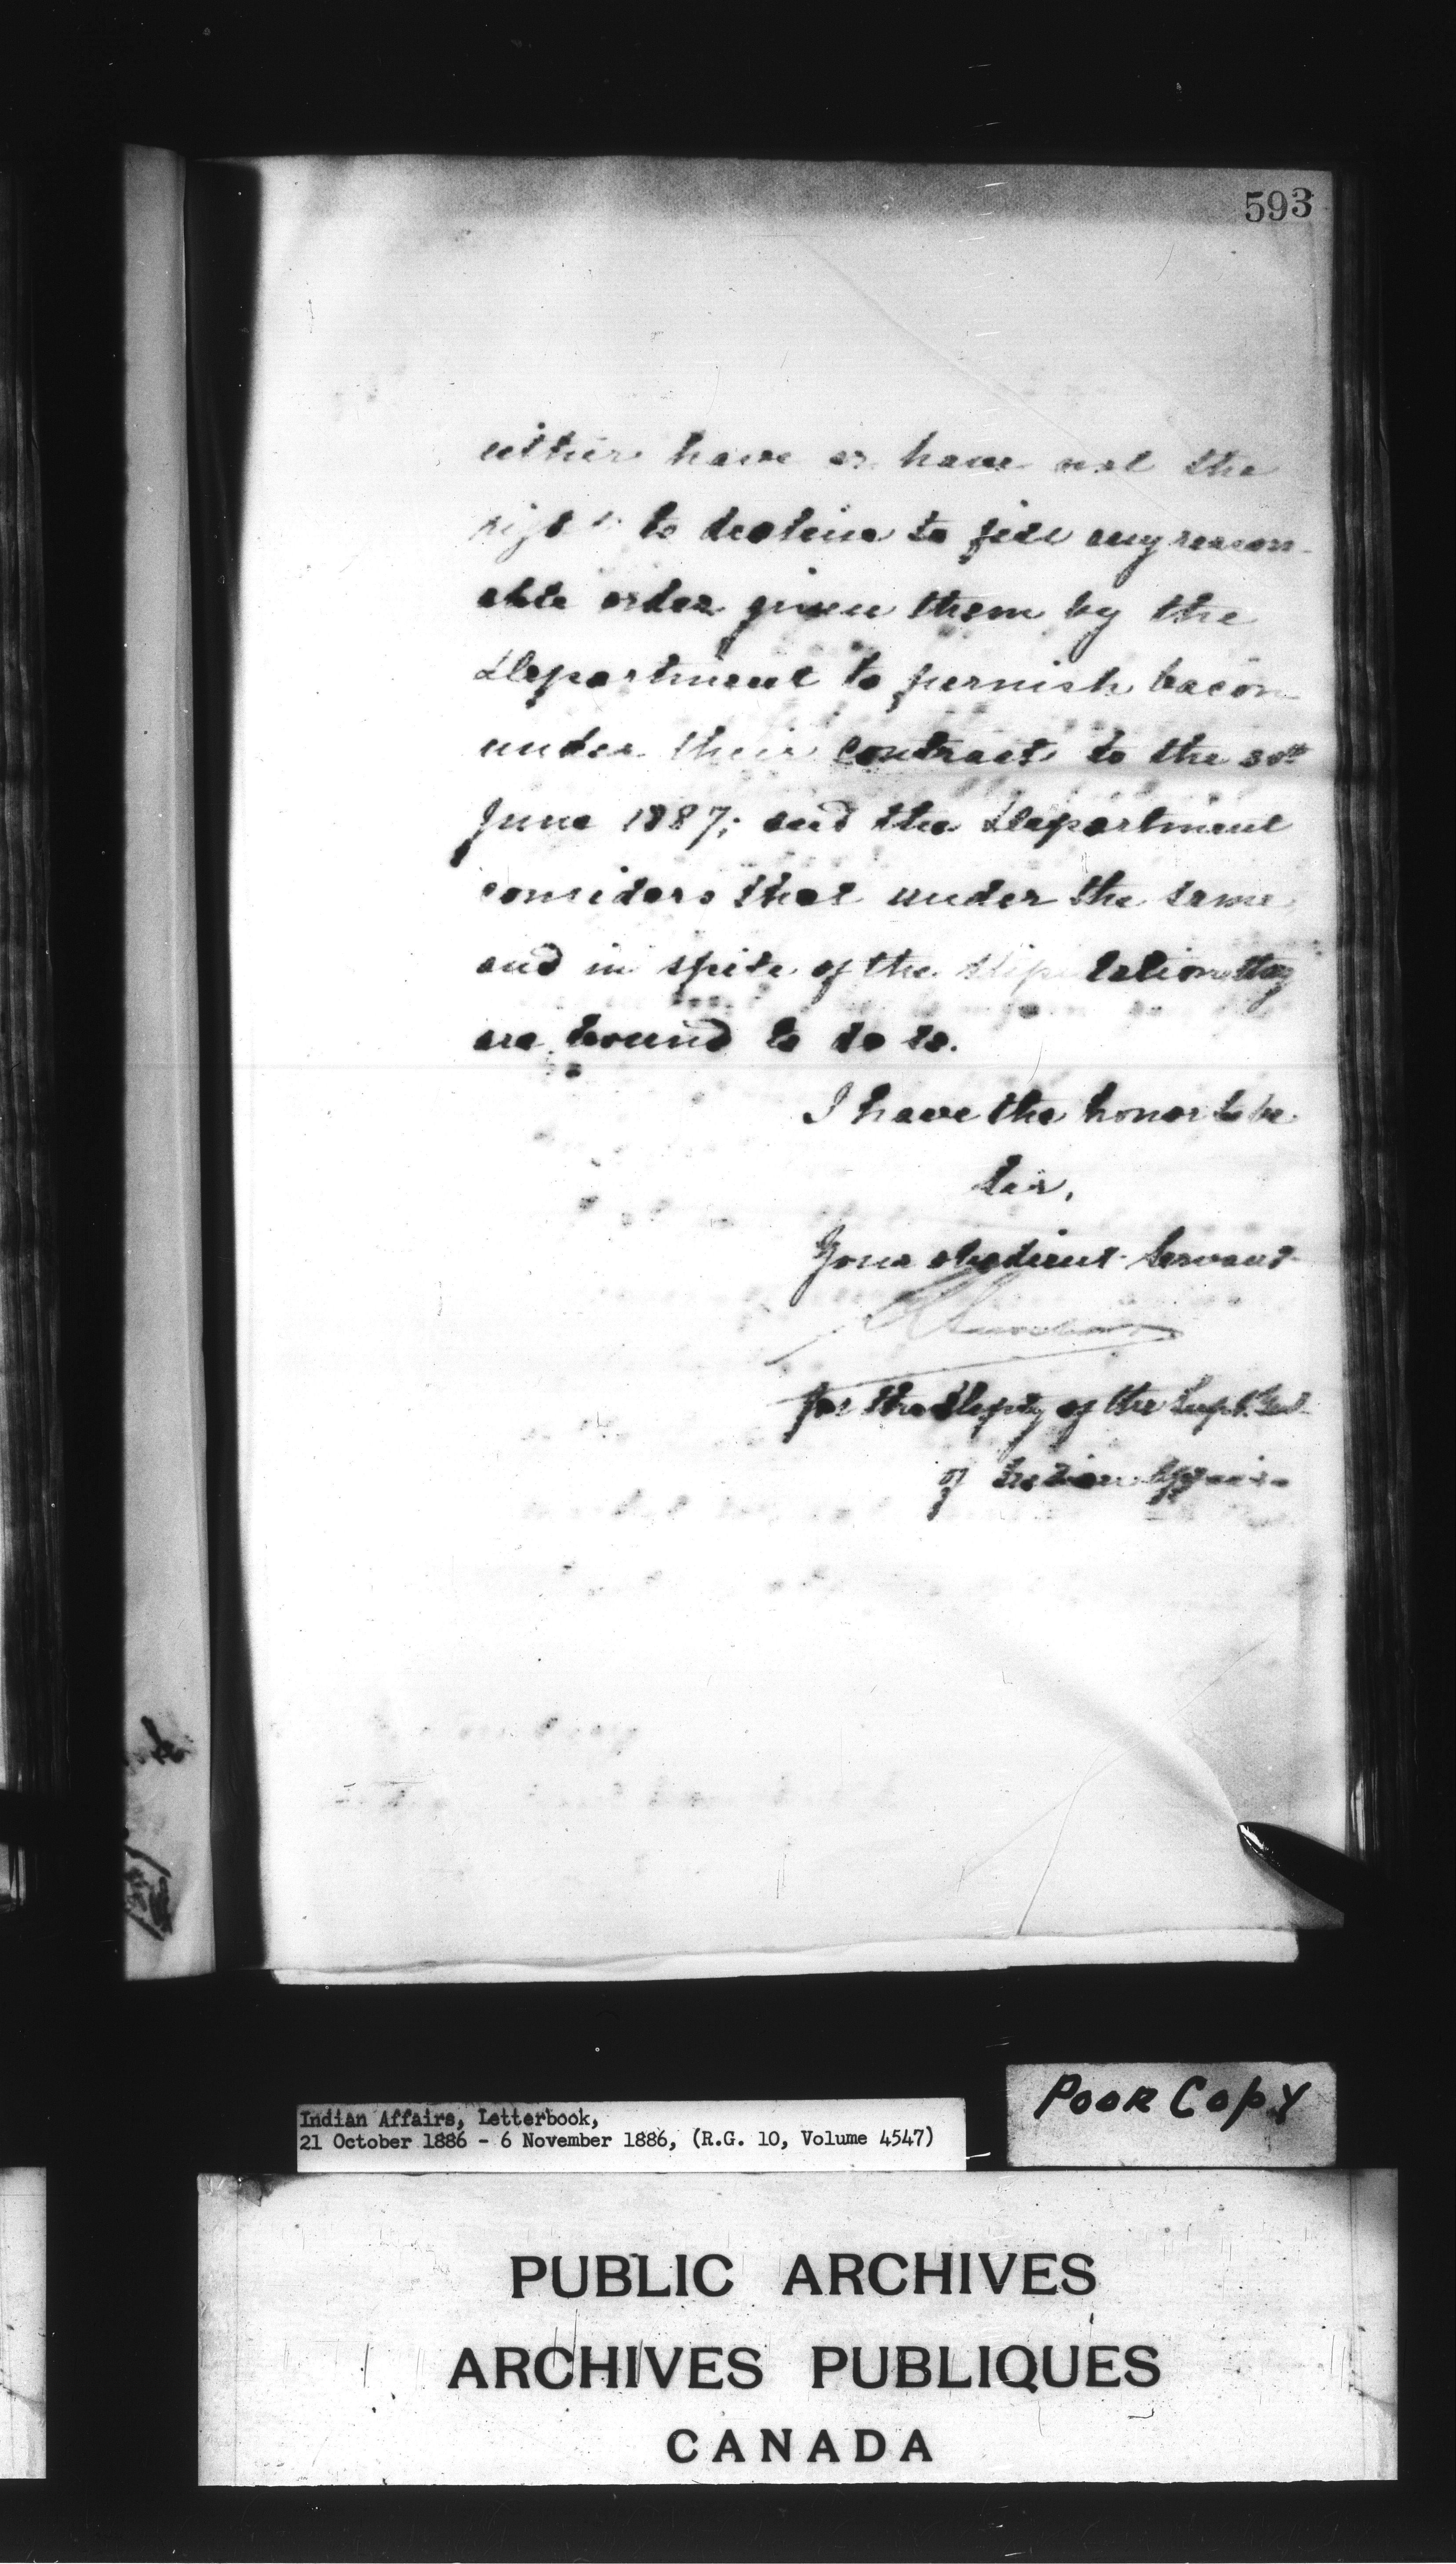 593
either have or have not the
right to decline to fill any reason-
able order given them by the
Department to furnish bacon
under their contract to the 30th
June 1887; and the Department
considers that under the same
and in spite of the stipulation they
are bound to do so.
I have the honor to be
Sir,
Your obedient Servant
for the Deputy of the Supt. Genl
of Indian Affairs
Indian Affairs, Letterbook,
21 October 1886 - 6 November 1886, (R.G. 10, Volume 4547)
POOR COPY
PUBLIC ARCHIVES
ARCHIVES PUBLIQUES
CANADA